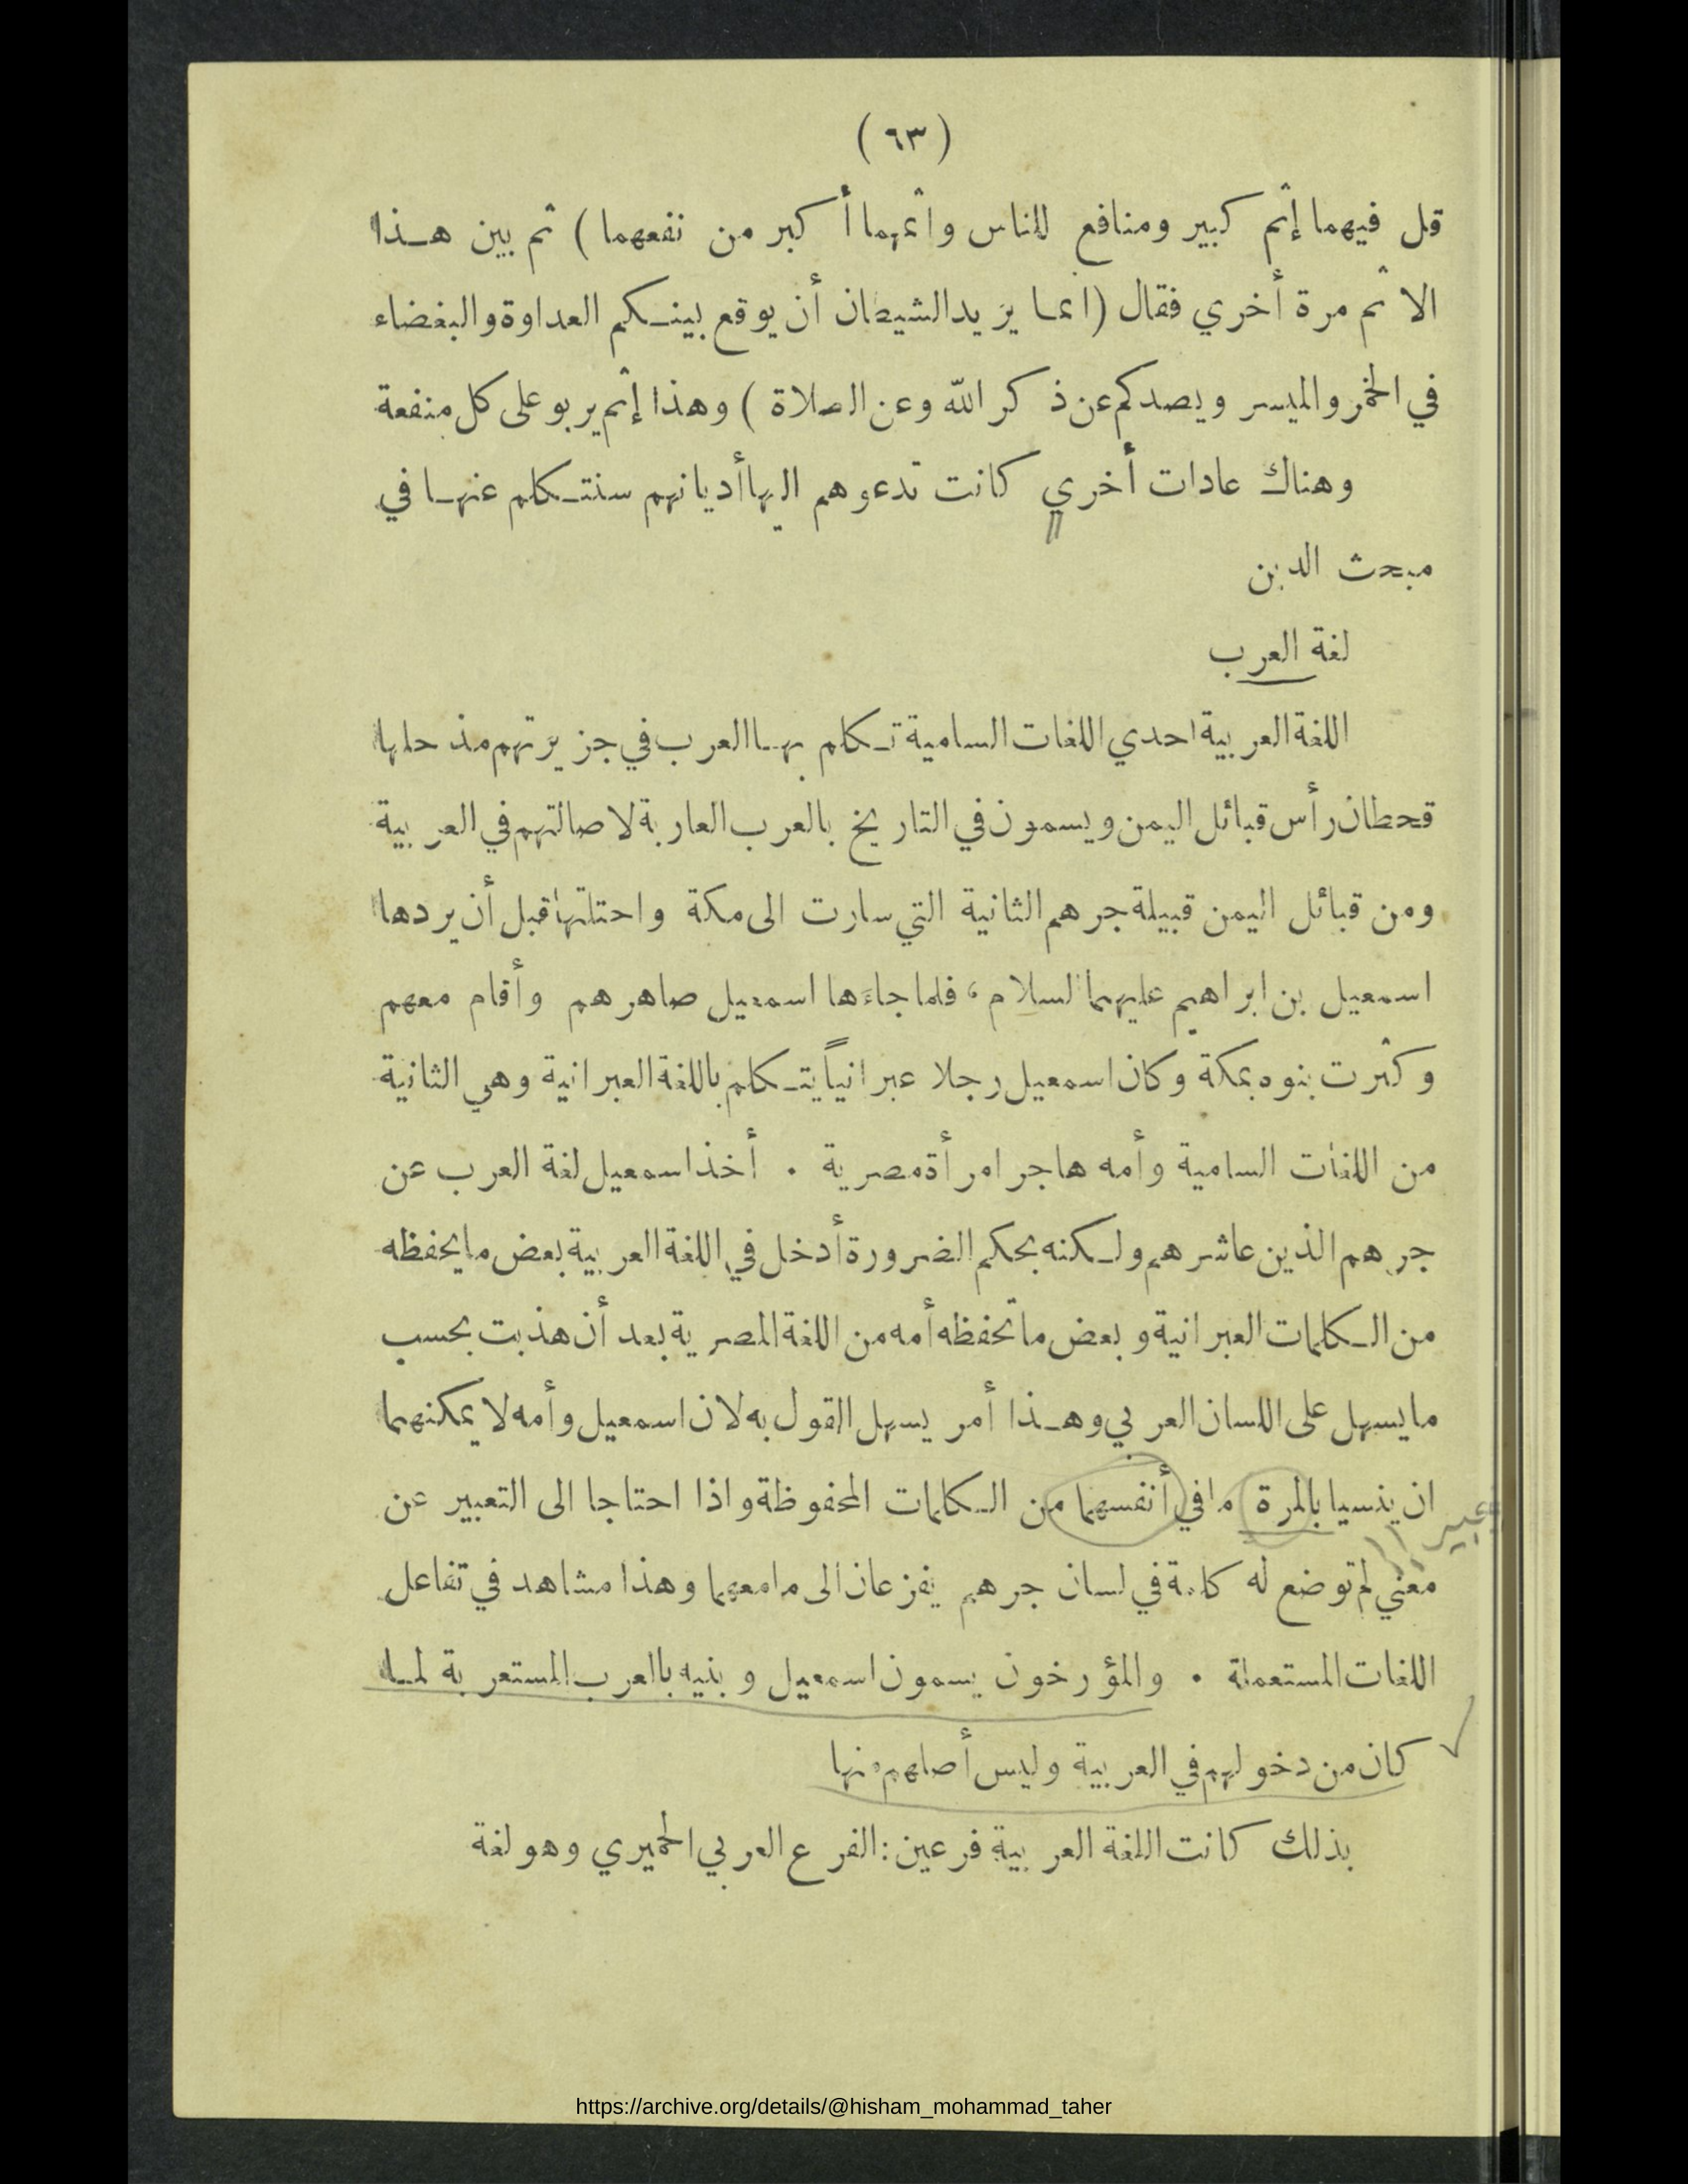 (٦٣)
قل فيهما إثم كبير ومنافع للناس واثمهما أكبر من نفعهما) ثم بين هـذا
الاثم مرة أخري فقال (انمـا يريد الشيطان أن يوقع بينـكم العداوة والبغضاء
في الخمر والميسر ويصدكم عن ذكر الله وعن الصلاة) وهذا إثم يربو على كل منفعة
وهناك عادات أخري كانت تدعوهم اليها أديانهم سنتـكلم عنهـا في
مبحث الدين
لغة العرب
اللغة العربية احدي اللغات السامية تـكلم بهـا العرب في جزيرتهم مذ حلها
قحطان رأس قبائل اليمن ويسمون في التاريخ بالعرب العاربة لاصالتهم في العربية
ومن قبائل اليمن قبيلة جرهم الثانية التي سارت الى مكة واحتلتها قبل أن يردها
اسمعيل بن ابراهيم عليهما السلام، فلما جاءَها اسمعيل صاهرهم وأقام معهم
وكثرت بنوه بمكة وكان اسمعيل رجلا عبرانياً يتـكلم باللغة العبرانية وهي الثانية
من اللغات السامية وأمه هاجر امرأة مصرية . أخذ اسمعيل لغة العرب عن
جرهم الذين عاشرهم ولـكنه بحكم الضرورة أدخل في اللغة العربية بعض ما يحفظه
من الـكلمات العبرانية وبعض ما تحفظه أمه من اللغة المصرية بعد أن هذبت بحسب
ما يسهل على اللسان العربي وهـذا أمر يسهل القول به لان اسمعيل وأمه لا يمكنهما
ان ينسيا بالمرة ما في أنفسهما من الـكلمات المحفوظة واذا احتاجا الى التعبير عن
معني لم توضع له كلمة في لسان جرهم يفزعان الى ما معهما وهذا مشاهد في تفاعل
اللغات المستعملة . والمؤرخون يسمون اسمعيل وبنيه بالعرب المستعربة لمـا
كان من دخولهم في العربية وليس أصلهم منها
بذلك كانت اللغة العربية فرعين: الفرع العربي الحميري وهو لغة
https://archive.org/details/@hisham_mohammad_taher